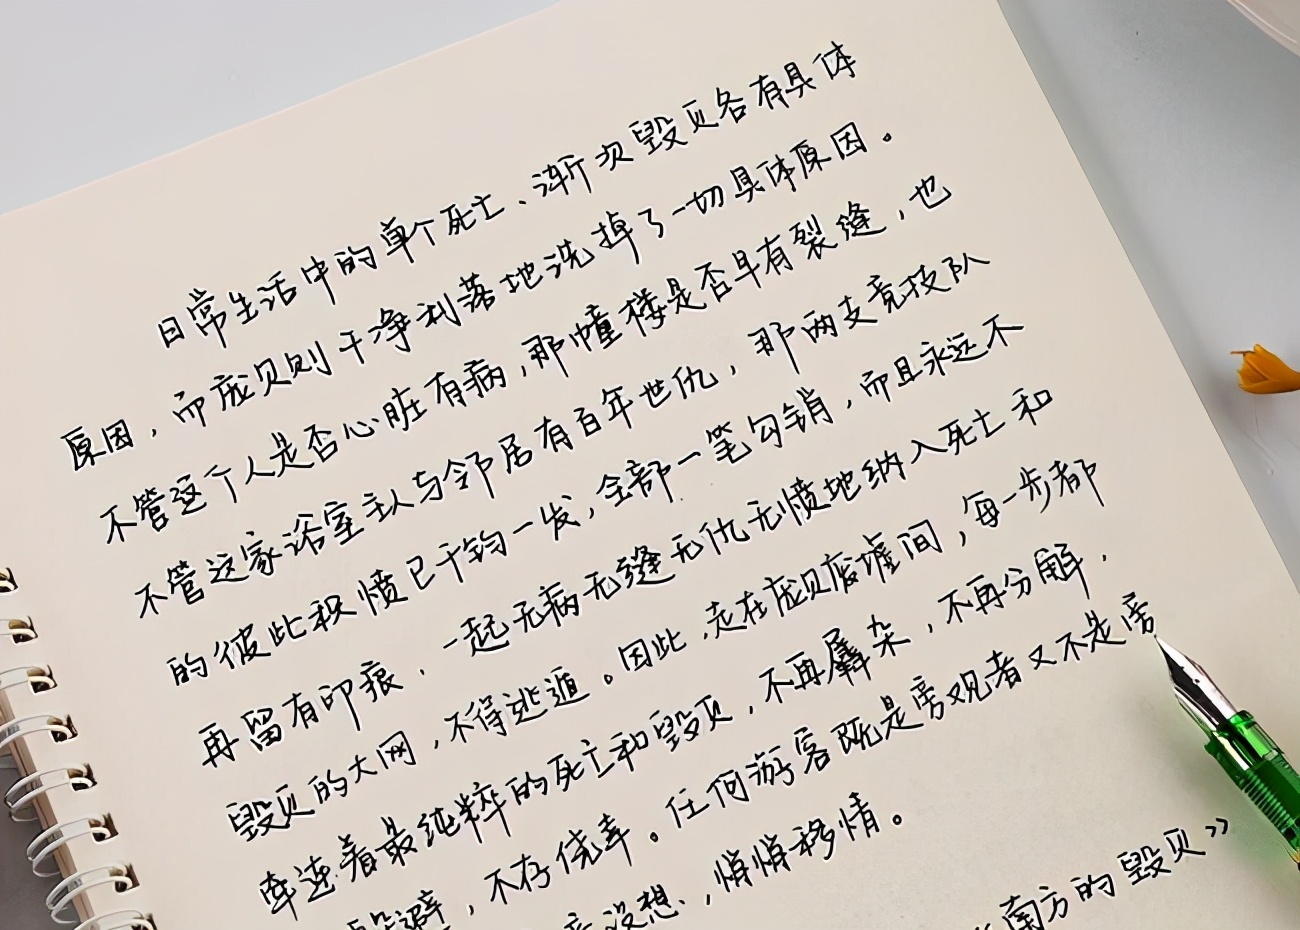 日常生活中的单个死亡、渐次毁灭各有具体
原因，而庞贝则干净利落地洗掉了一切具体原因。
不管这个人是否心脏有病，那幢楼是否早有裂缝，也
不管这家浴室主人与邻居有百年世仇，那两支竞技队
的彼此积愤已千钧一发，全部一笔勾销，而且永远不
再留有印痕，一起无病无缝无仇无愤地纳入死亡和
毁灭的大网，不得逃遁。因此，走在庞贝废墟间，每一步都
牵连着最纯粹的死亡和毁灭，不再羼杂，不再分解，
躲避，不存侥幸。任何游客既是旁观者又不是旁
没想，悄悄移情。
南方的毁灭》